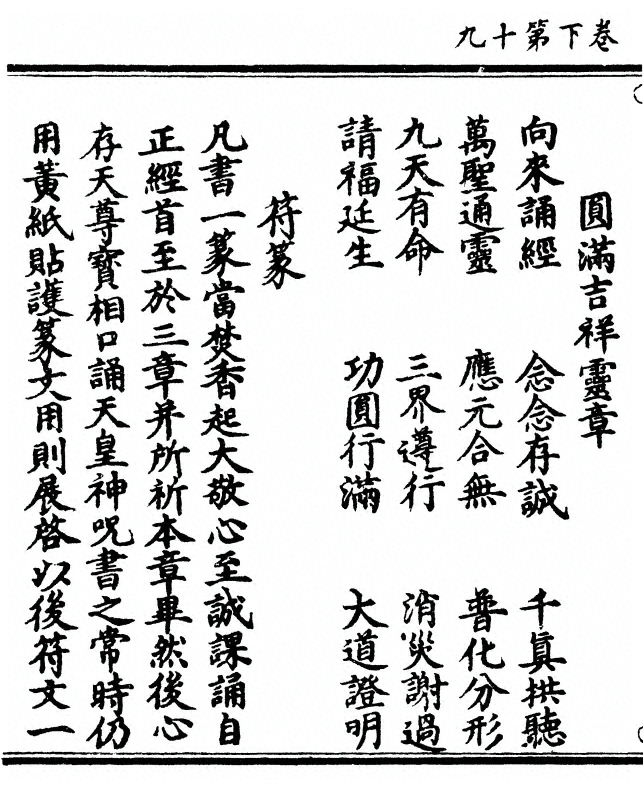 卷下第十九
圓滿吉祥靈章
向來誦經　念念存誠　千眞拱聽
萬聖通靈　應元合無　普化分形
九天有命　三界遵行　消災謝過
請福延生　功圓行滿　大道證明
符篆
凡書一篆當焚香起大敬心至誠課誦自
正經首至於三章并所祈本章畢然後心
存天尊寶相口誦天皇神咒書之常時仍
用黃紙貼護篆文用則展啓以後符文一